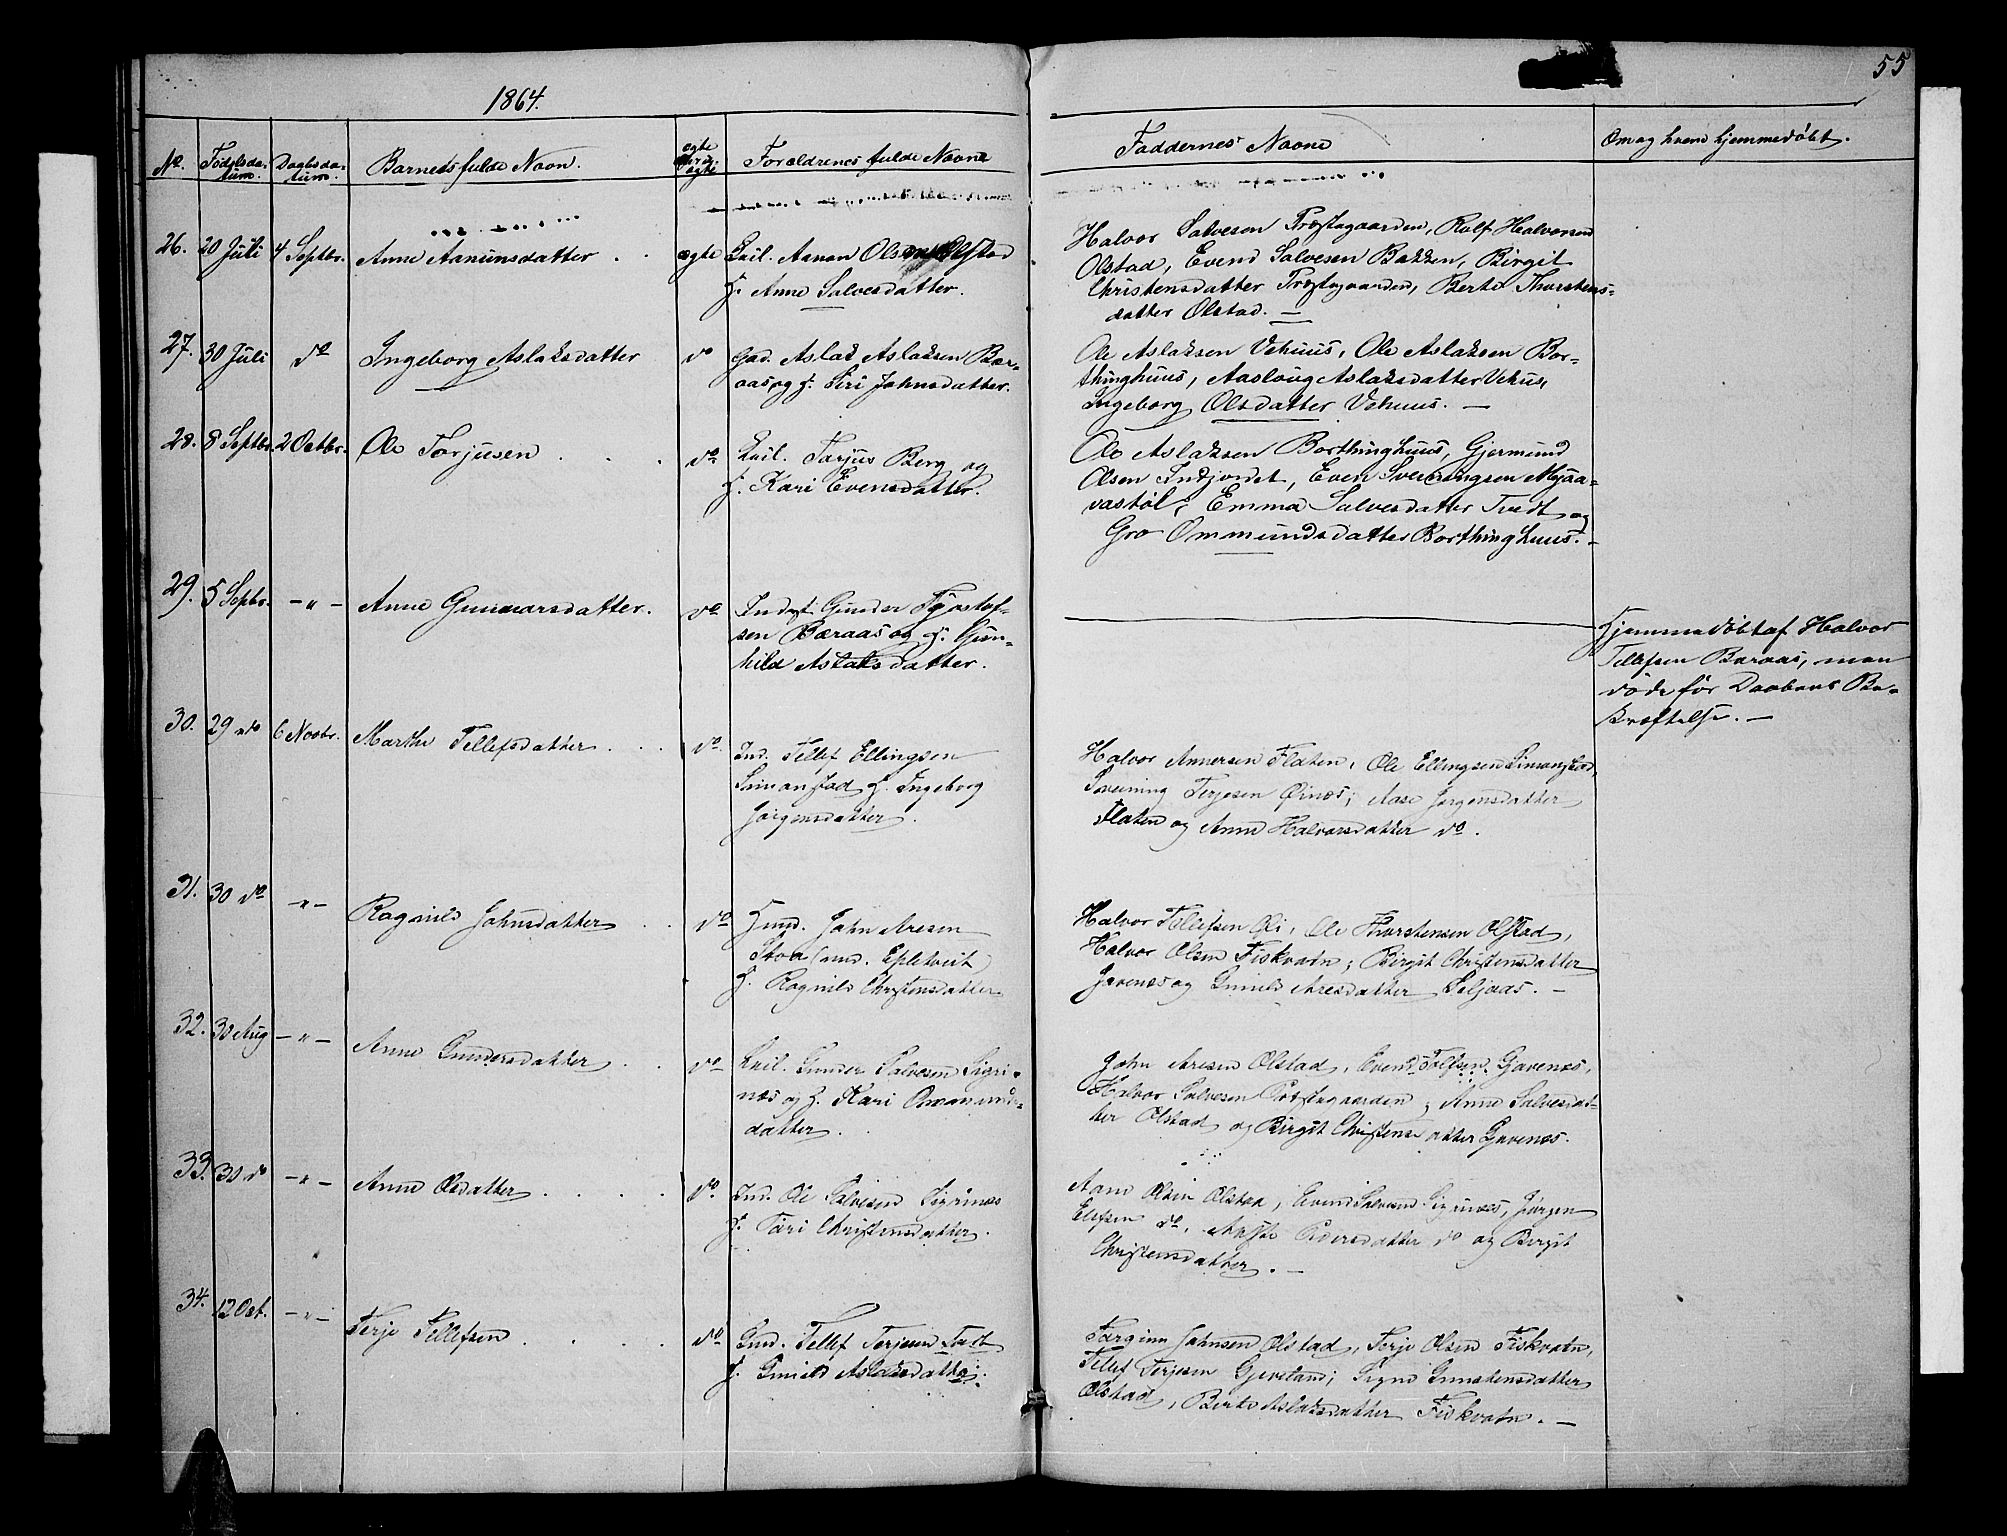 55
1864.
No. Fødselsda- Daabsda- Barnets fulde Navn. ægte Forældrenes fulde Navne Faddernes Navne Om og hvem hjemmedøbt.
tum. tum. ægte
26. 20 Juli 4 Septbr. Anne Aanunsdatter . . ægte Leil. Aanon Olsen Olstad
H. Anne Salvesdatter.
Halvor Salvesen Præstegaarden, Rolf Halvorsen
Olstad, Evend Salvesen Bakken, Birgit
Christensdatter Præstegaarden, Berte Thorstens-
datter Olstad. —
27. 30 Juli do Ingeborg Aslaksdatter do Gad. Aslak Aslaksen Bær-
aas og H. Siri Johnsdatter.
Ole Aslaksen Vehuus, Ole Aslaksen Bor-
thinghuus, Aaslaug Aslaksdatter Vehus,
Ingeborg Olsdatter Vehuus. —
28. 8 Septbr. 2 Octbr. Ole Torjusen . . . do Leil. Torjus Berg og
H. Kari Evensdatter.
Ole Aslaksen Borthinghuus, Gjermund
Olsen Indjordet, Even Sveiningsen Mjaa-
vastøl, Emma Salvesdatter Tvedt og
Gro Ommundsdatter Borthinghuus. -
29. 5 Septbr. -"- Anne Gunnarsdatter. do Inderst Gunder Tjostof-
sen Bæraas og H. Gun-
hild Aslaksdatter.
Hjemmedøbt af Halvor
Tellefsen Baraas, men
døde før Daabens Be-
kræftelse. —
30. 29 do 6 Novbr. Marthe Tellefsdatter . . . do Ind. Tellef Ellingsen
Simonstad H. Ingeborg
Jørgensdatter.
Halvor Annersen Flaten, Ole Ellingsen Simonstad,
Sveining Terjesen Øinæs; Aase Jørgensdatter
Flaten og Anne Halvorsdatter do.
31. 30 do -"- Ragnild Johnsdatter . . do Huusd. John Aresen
Stoa (und. Epletveit)
H. Ragnild Christensdatter
Halvor Tellefsen Oli, Ole Thorstensen Olstad,
Halvor Olsen Fiskvatn; Birgit Christensdatter
Javenæs og Gunild Aresdatter Seljaas. —
32. 30 Aug -"- Anne Gundersdatter . . do Leil. Gunder Salvesen Sigri-
næs og H. Kari Ommunds-
datter.
John Aresen Olstad, Evend Tellfsen Gjavenæs,
Halvor Salvesen Præstegaarden; Anne Salvesdat-
ter Olstad og Birgit Christensdatter Gjavenæs.
33. 30 do -"- Anne Olsdatter . . . . do. Ind. Ole Salvesen Sigrinæs
H. Tari Christensdatter.
Aanon Olsen Olstad, Evend Salvesen Sigrinæs, Jørgen
Elefsen do, Aaste Pedersdatter do og Birgit
Christensdatter. —
34. 12 Oct. -"- Terje Tellefsen . . . . do Grd. Tellef Terjesen Tvedt
H. Gunild Aslaksdatter.
Targinn Johnsen Olstad, Terje Olsen Fiskvatn,
Tellef Terjesen Gjeveland; Signe Gunstensdatter
Olstad, Birte Aslaksdatter Fiskvatn. —